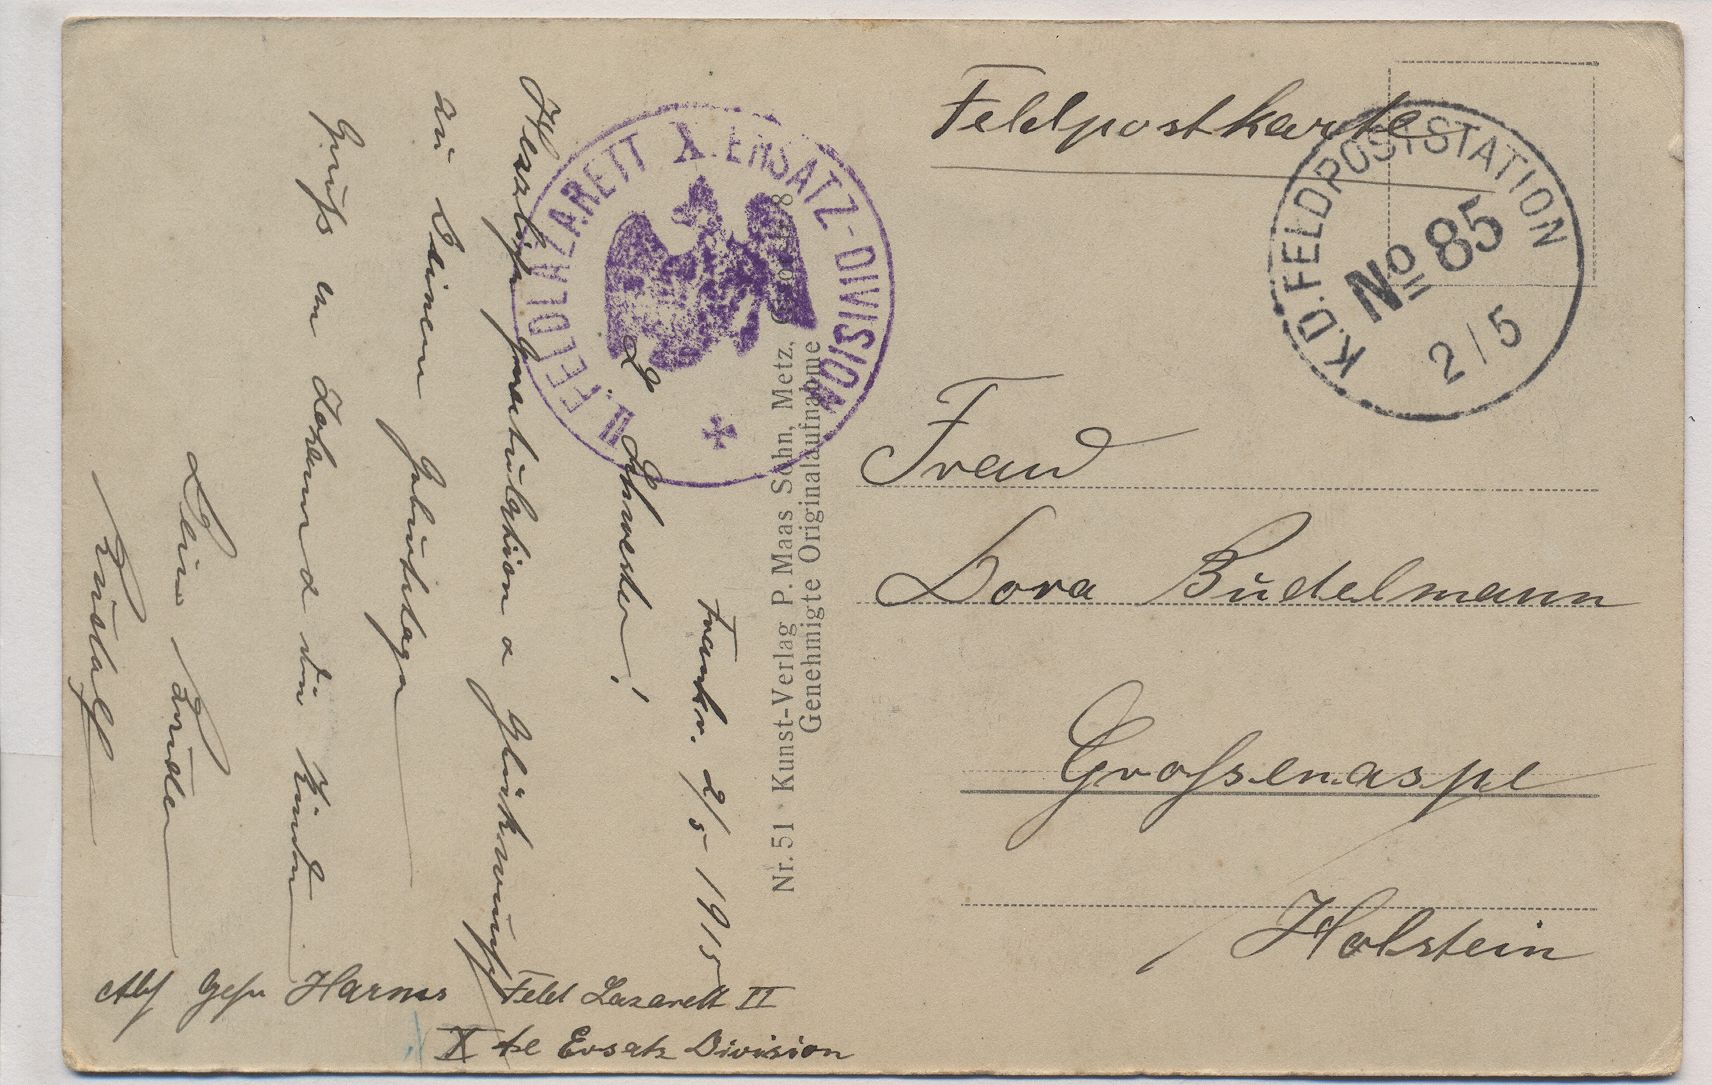 Feldpostkarte
K.D. FELDPOSTSTATION
No 85
2/5
Frau
Dora Büdelmann
Grossenaspe
Holstein
II. FELDLAZARETT X. ERSATZ-DIVISION
Nr. 51 Kunst-Verlag P. Maas Sohn, Metz,
Genehmigte Originalaufnahme
Frankr. 2/5 1915
L Schwester!
Herzliche Gratulation u Glückwunsch
zu Deinem Geburtstage
Gruß an Johann d die Kinder
Dein Bruder
Gustaf
Abs Gefr Harms Feld Lazarett II
X te Ersatz Division